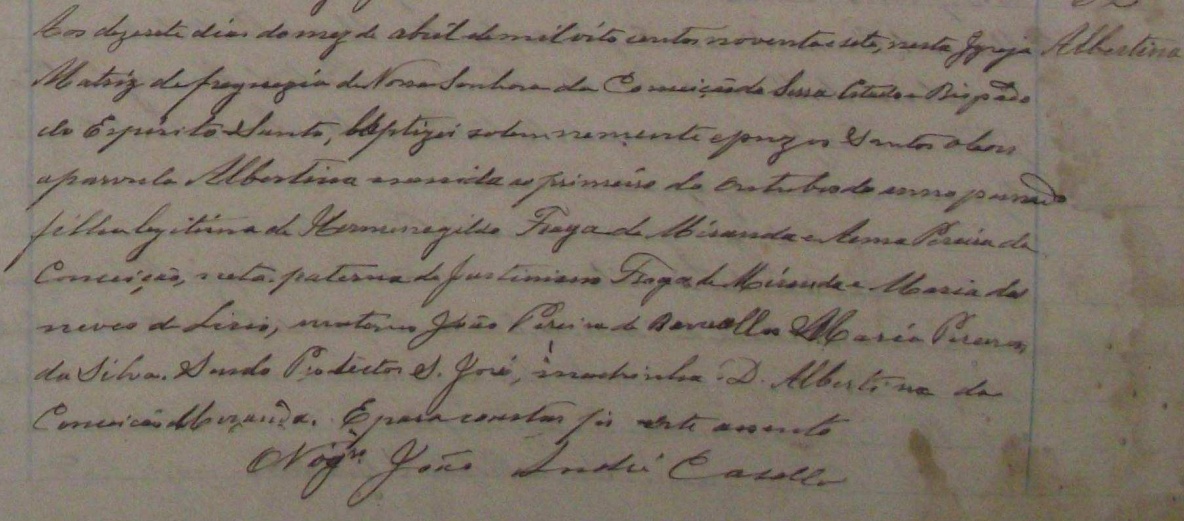 Aos dezesete dias do mez de abril de mil oito centos noventa e sete, nesta Igreja
Albertina
Matriz de freguezia de Nossa Senhora da Conceição da Serra Estado e Bispado
do Espirito Santo, baptizei solemnemente e puz os Santos oleos
a parvula Albertina nascida ao primeiro de outubro do anno passado
filha legitima de Hermenegildo Fraga de Miranda e Anna Pereira da
Conceição, neta paterna de Justiniano Fraga de Miranda e Maria das
neves de Lirio, materna João Pereira de Barcellos e Maria Pereira
da Silva. Sendo Protector S. José, madrinha D. Albertina da
Conceição Miranda. E para constar fiz este assento
Vigro João André Casella